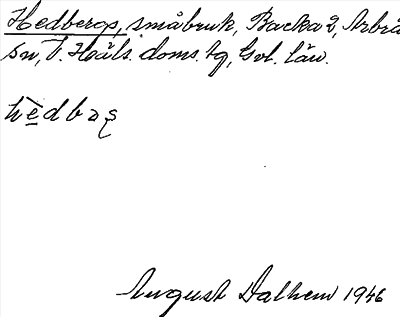 Hedbergs, småbruk, Backa 2, Arbrå
sn, V. Häls. doms. tg, Gvl. län.
hèdbas
August Dalhem 1946